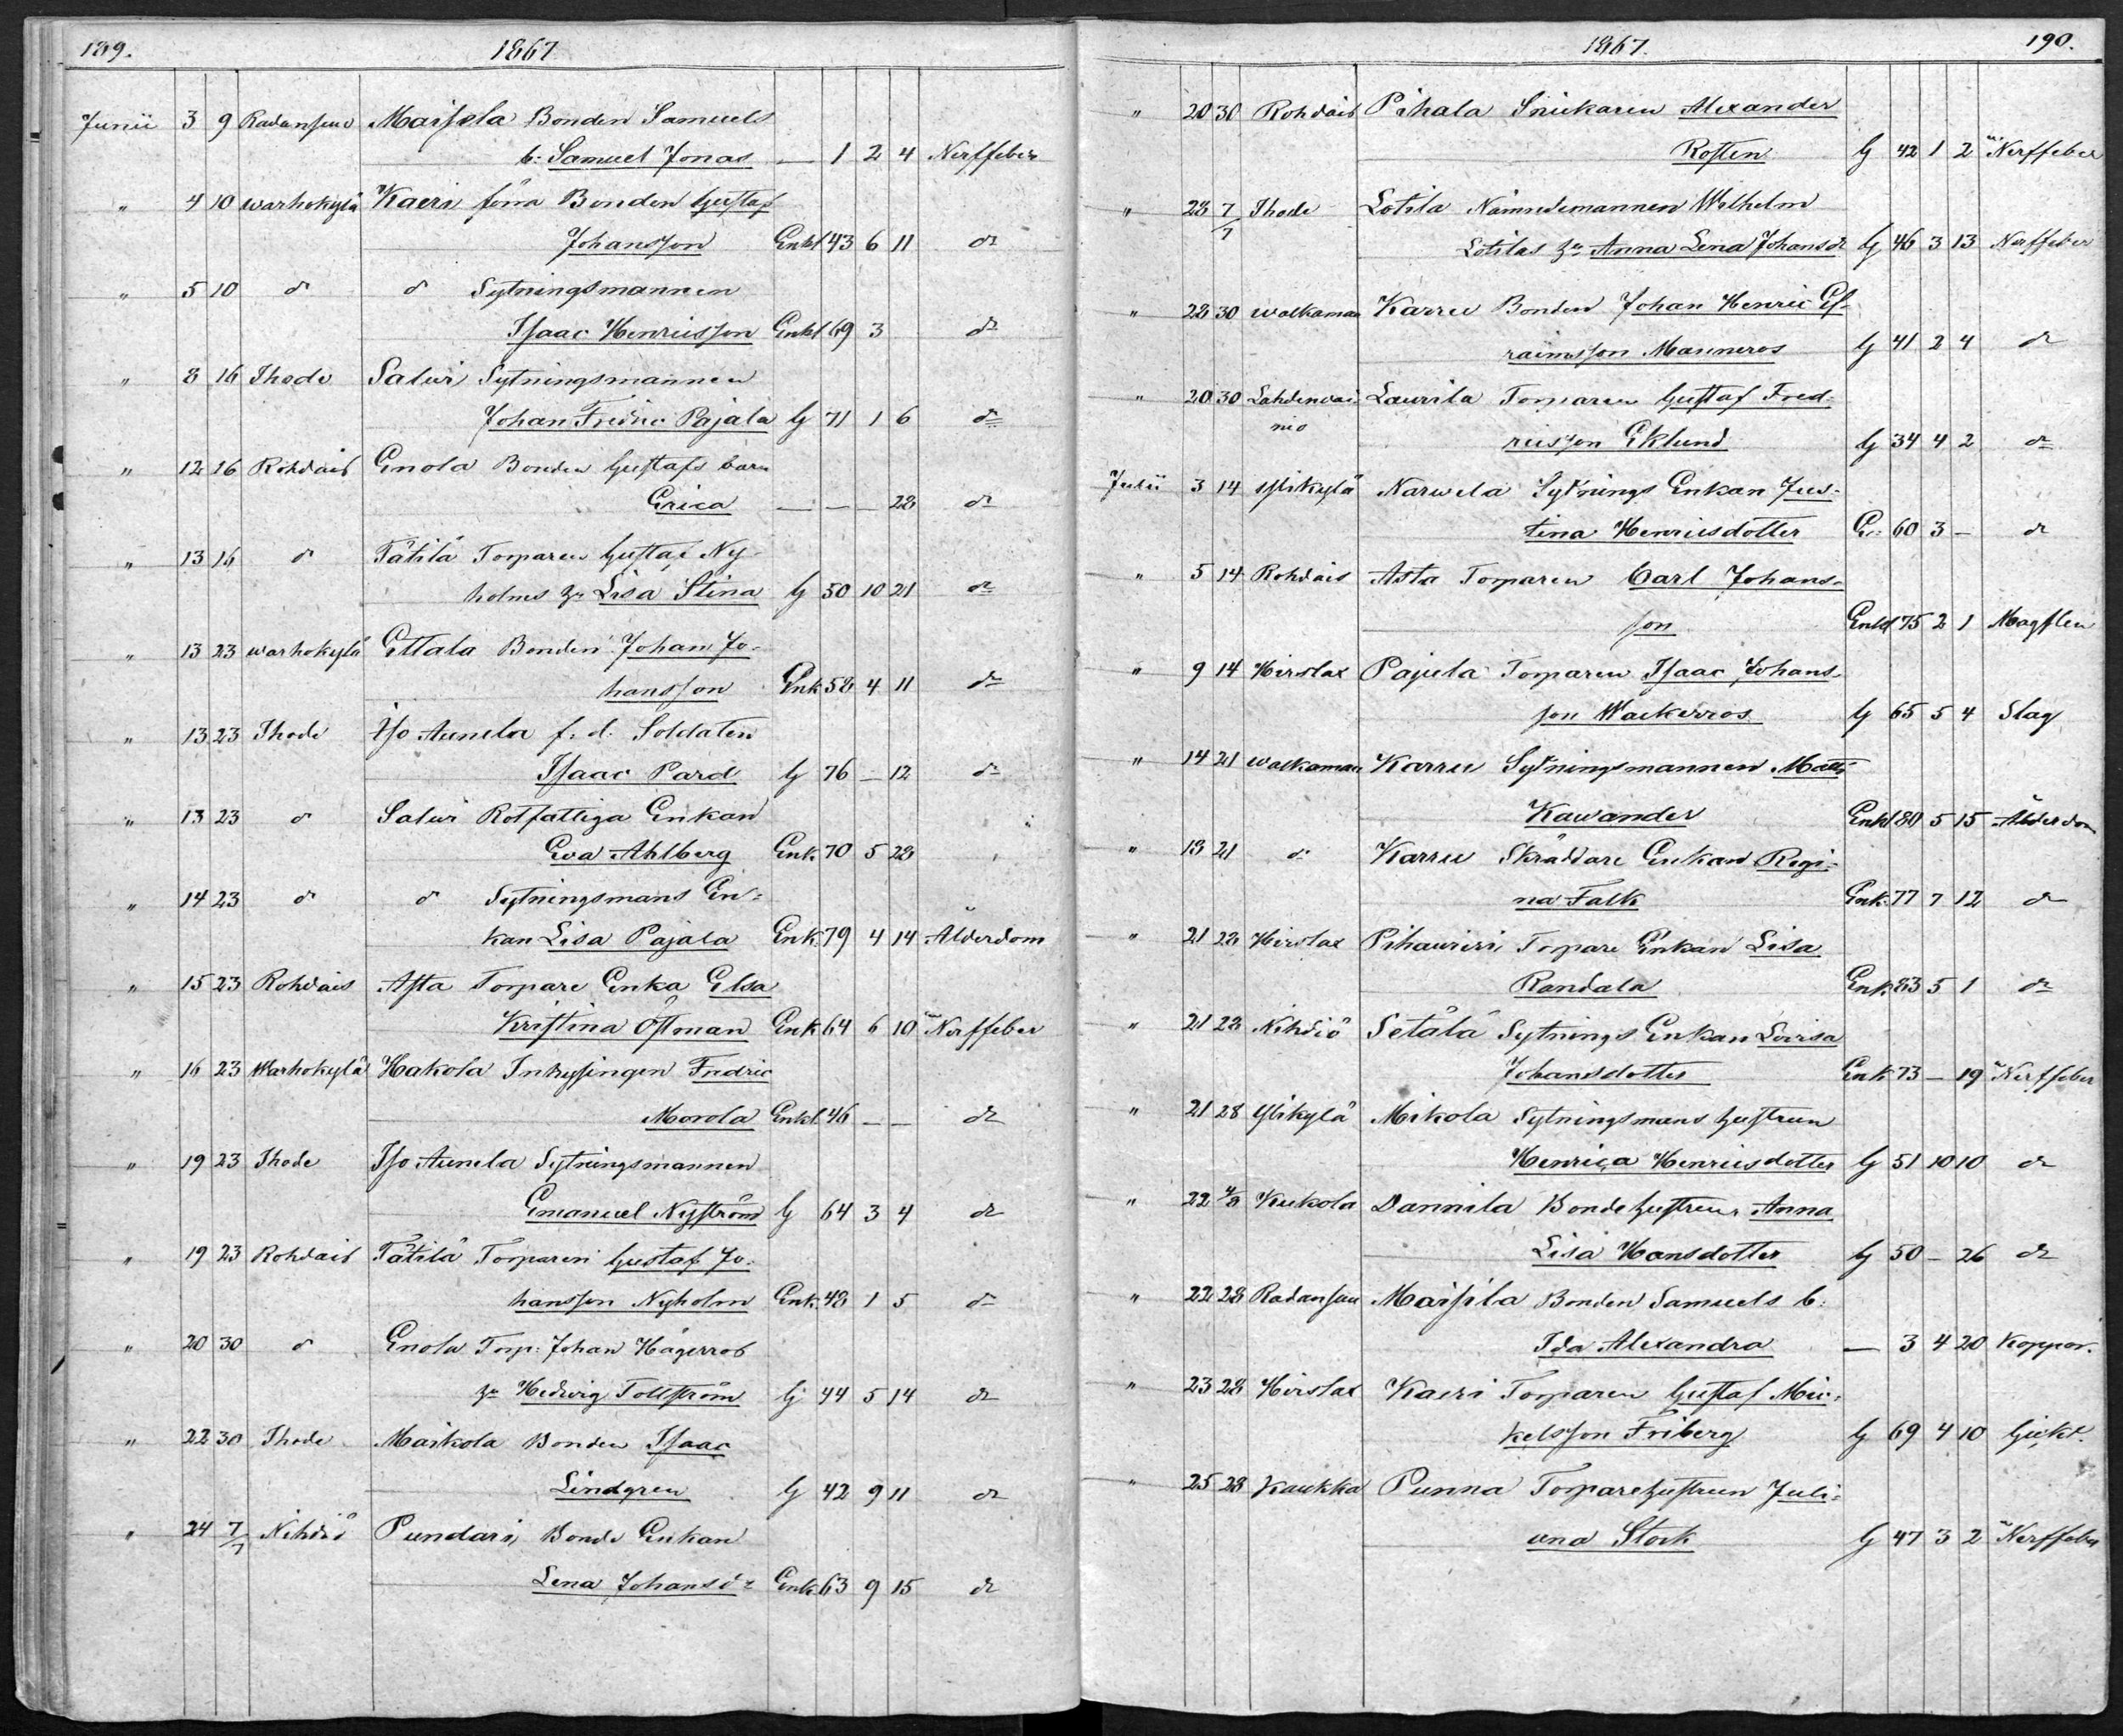 189. 1867.
Junii 3 9 Radansuu Maisela Bonden Samuels
b: Samuel Jonas — 1 2 4 Nerffeber
" 4 10 Warhokylä Kaeri förra Bonden Gustaf
Johansson Enkl 43 6 11 do
" 5 10 do do Sytningsmannen
Isaac Henricsson Enkl 69 3 do
" 8 16 Ihode Saluri Sytningsmannen
Johan Fredric Pajala G 71 1 6 do
" 12 16 Rohdais Enola Bonden Gustafs barn
Erica — — — 28 do
" 13 16 do Tätilä Torparen Gustaf Ny-
holms hu Lisa Stina G 50 10 21 do
" 13 23 Warhokylä Ettala Bonden Johan Jo-
hansson Enk 58 4 11 do
" 13 23 Ihode Iso Aunela f. d. Soldaten
Isaac Pard G 76 — 12 do
" 13 23 do Saluri Rotfattiga Enkan
Eva Ahlberg Enk. 70 5 28 "
" 14 23 do do Sytningsmans En-
kan Lisa Pajala Enk. 79 4 14 Ålderdom
" 15 23 Rohdais Asta Torpare Enka Elsa
Kristina Östman Enk 64 6 10 Nerffeber
" 16 23 Warhokylä Hakola Inhysingen Fredric
Morola Enkl. 46 — — do
" 19 23 Ihode Iso Aunela Sytningsmannen
Emanuel Nyström G 64 3 4 do
" 19 23 Rohdais Tätilä Torparen Gustaf Jo-
hansson Nyholm Enk. 48 1 5 do
" 20 30 do Enola Torp: Johan Hägerros
hu Hedwig Tollström G 44 5 14 do
" 22 30 Ihode Maikola Bonden Isaac
Lindgren G 42 9 11 do
" 24 7/7 Nihdiö Pundari Bonde Enkan
Lena Johansdr Enk. 63 9 15 do
1867. 190.
" 20 30 Rohdais Pihala Snickaren Alexander
Rosten G 42 1 2 Nerffeber
" 28 7/7 Ihode Lotila Nämndemannen Wilhelm
Lotilas hu Anna Lena Johansdr G 46 3 13 Nerffeber
" 28 30 Walkamaa Karru Bonden Johan Henric Ef-
raimsson Manneros G 41 2 4 do
" 20 30 Lahdenwai- Laurila Torparen Gustaf Fred-
nio ricsson Eklund G 34 4 2 do
Julii 3 14 Ylikylä Narwela Sytnings Enkan Jus-
tina Henricsdotter E: 60 3 — do
" 5 14 Rohdais Asta Torparen Carl Johans-
son Enkl 75 2 1 Magflen
" 9 14 Hirslax Pajula Torparen Isaac Johans-
son Wackerros G 65 5 4 Slag
" 14 21 Walkamaa Karru Sytningsmannen Matts
Kawander Enkl 80 5 15 Ålderdom
" 13 21 do Karru Skräddare Enkan Regi-
na Falk Enk. 77 7 12 do
" 21 28 Hirslax Pihawiri Torpare Enkan Lisa
Randala Enk. 83 5 1 do
" 21 28 Nihdiö Setälä Sytnings Enkan Lovisa
Johansdotter Enk 73 — 19 Nerffeber
" 21 28 Ylikylä Mikola Sytningsmans hustrun
Henrica Henricsdotter G 51 10 10 do
" 22 4/8 Kukola Dannila Bonde hustrun Anna
Lisa Hansdotter G 50 — 26 do
" 22 28 Radansuu Maisila Bonden Samuels b:
Ida Alexandra — 3 4 20 Koppor.
" 23 28 Hirslax Kaeri Torparen Gustaf Mic-
kelsson Friberg G 69 4 10 Gickt.
" 25 28 Kaukka Punna Torpare hustrun Juli-
ana Stock G 47 3 2 Nerffeber